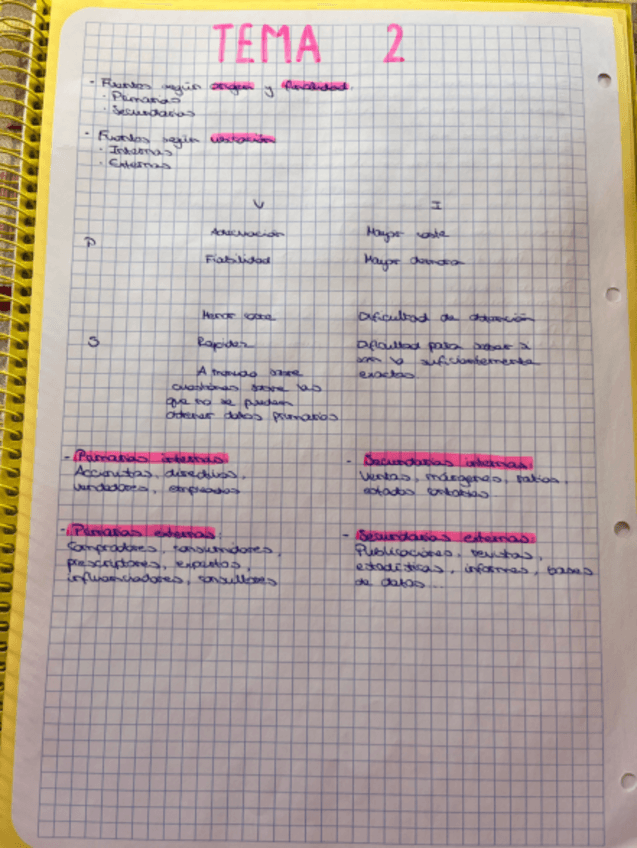 TEMA 2
- Fuentes según origen y finalidad.
· Primarias
· Secundarias
- Fuentes según ubicación
· Internas
· Externas
V I
Adecuación Mayor coste
P
Fiabilidad Mayor demora
Menor coste Dificultad de obtención
S Rapidez Dificultad para saber si
son lo suficientemente
A menudo sobre exactas
cuestiones sobre las
que no se pueden
obtener datos primarios
- Primarias internas
Accionistas, directivos,
vendedores, empleados
- Secundarias internas
Ventas, márgenes, ratios,
estados contables
- Primarias externas
Compradores, consumidores,
prescriptores, expertos,
influenciadores, consultores
- Secundarias externas
Publicaciones, revistas,
estadísticas, informes, bases
de datos...